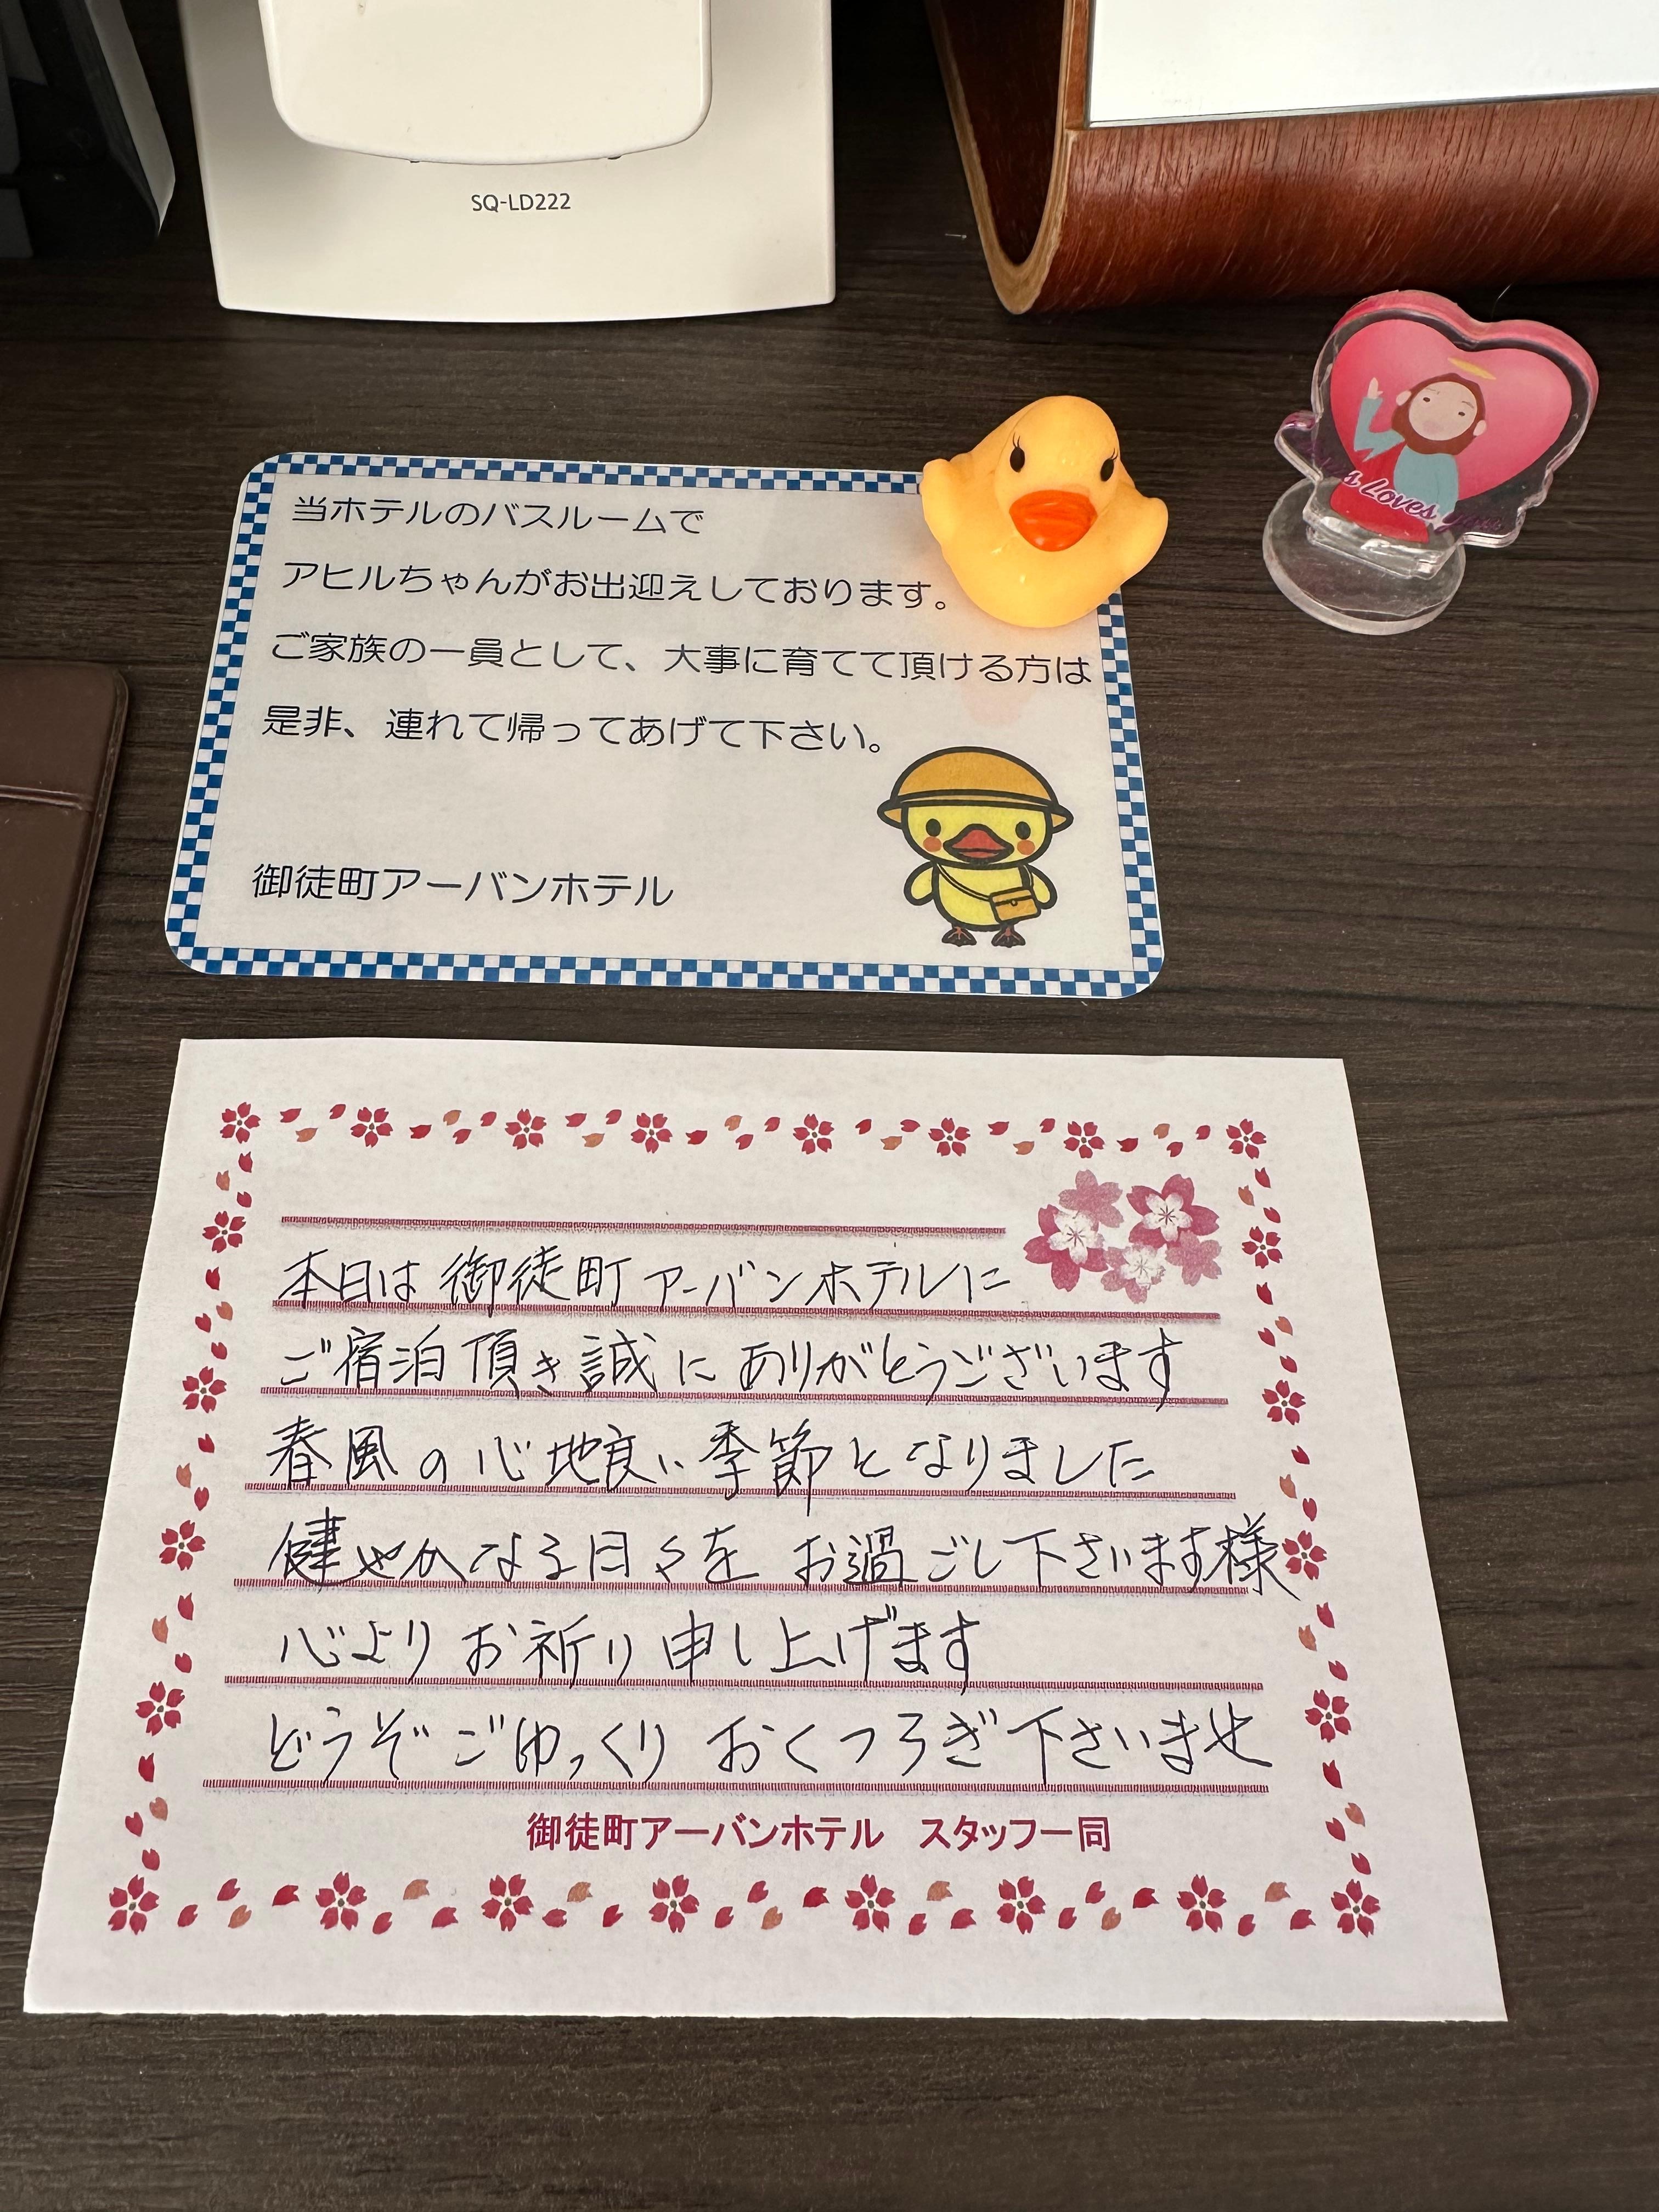 SQ-LD222
Loves you
当ホテルのバスルームで
アヒルちゃんがお出迎えしております。
ご家族の一員として、大事に育てて頂ける方は
是非、連れて帰ってあげて下さい。
御徒町アーバンホテル
本日は御徒町アーバンホテルに
ご宿泊頂き誠にありがとうございます
春風の心地良い季節となりました
健やかなる日々をお過ごし下さいます様
心よりお祈り申し上げます
どうぞごゆっくりおくつろぎ下さいませ
御徒町アーバンホテル スタッフ一同